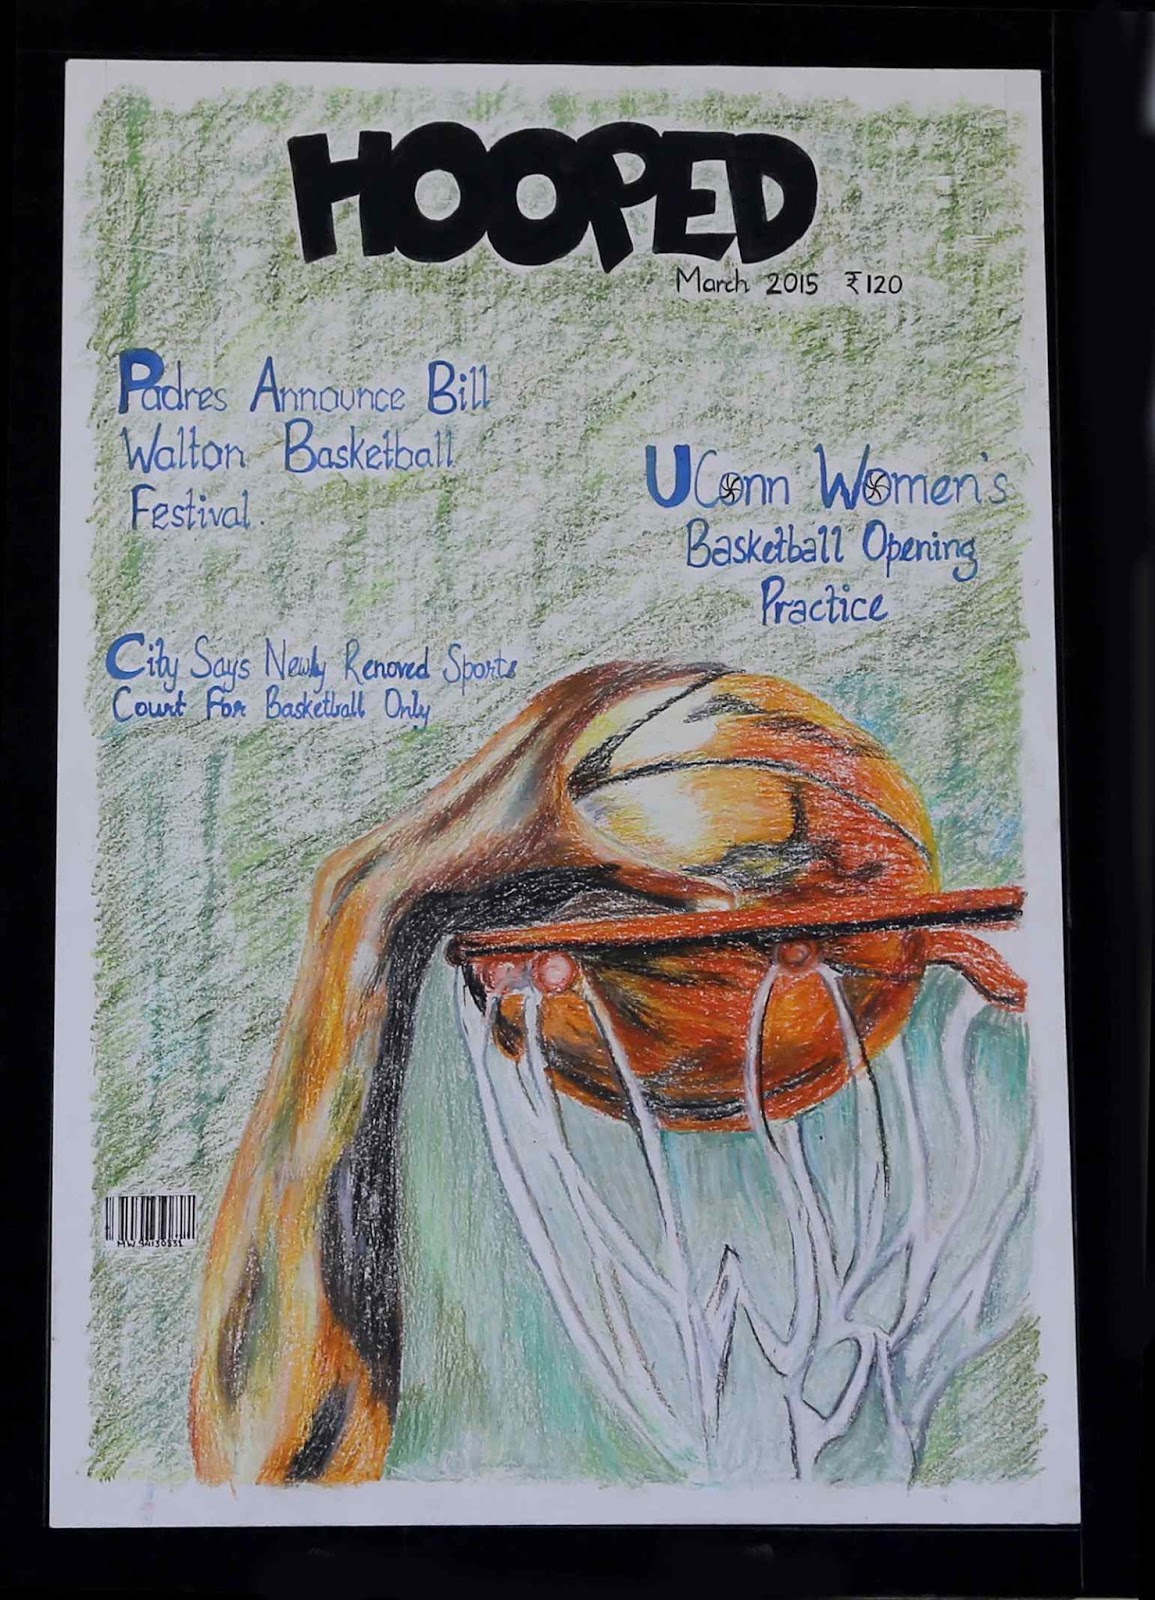 HOOPED
March 2015 ₹120
Padres Announce Bill
Walton Basketball
Festival.
UConn Women's
Basketball Opening
Practice
City Says Newly Renoved Sports
Court For Basketball Only